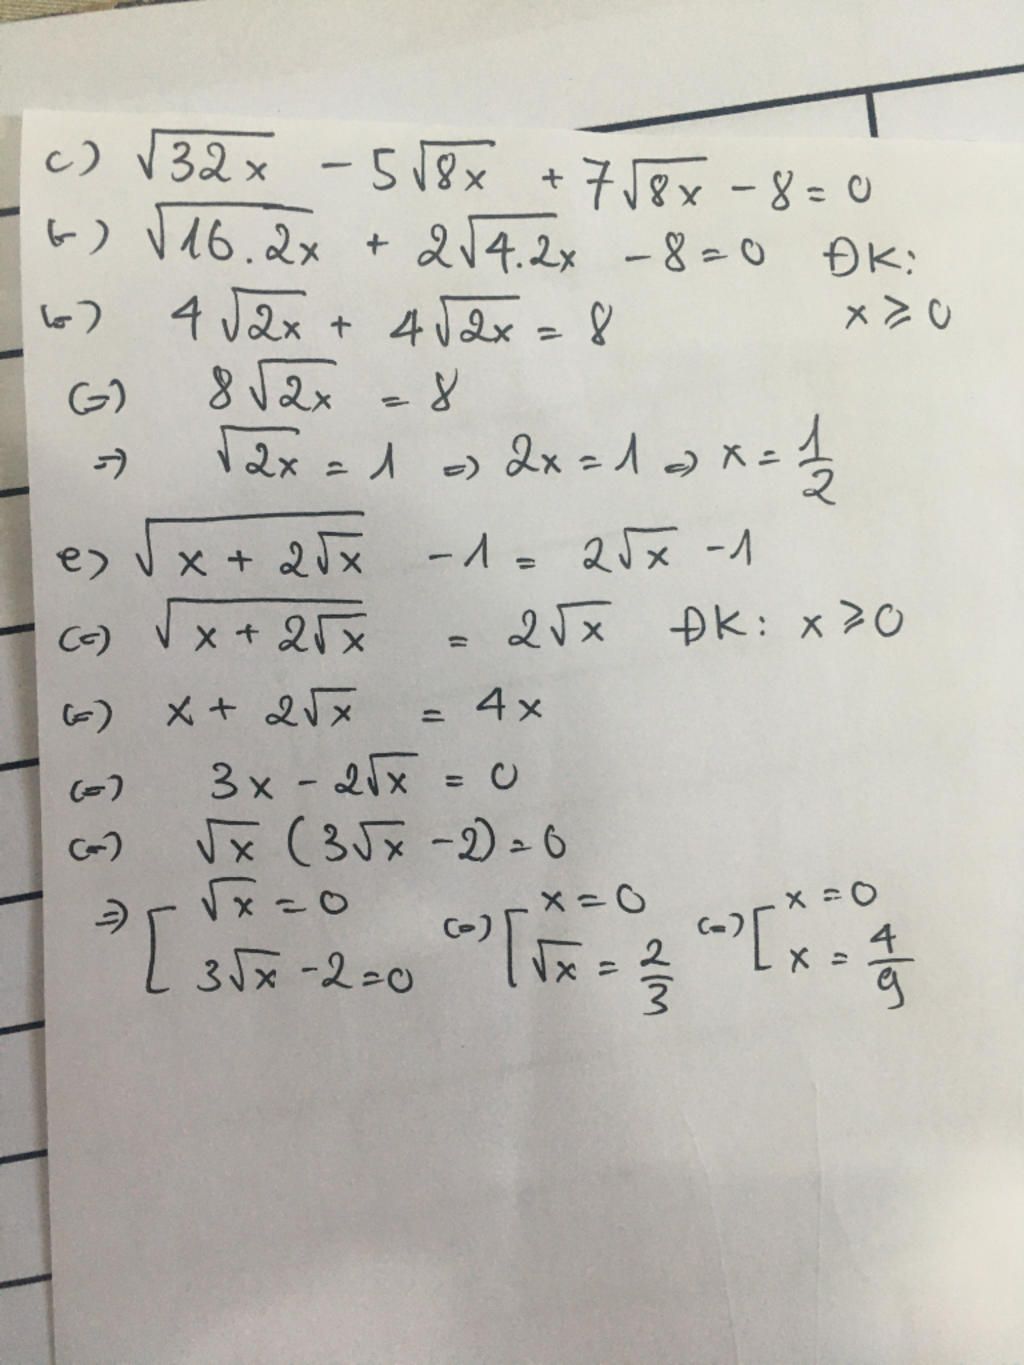 c) √32x - 5√8x + 7√8x - 8 = 0
(=) √16.2x + 2√4.2x - 8 = 0 ĐK:
(=) 4√2x + 4√2x = 8 x ≥ 0
(=) 8√2x = 8
=) √2x = 1 =) 2x = 1 =) x = 1/2
e) √(x + 2√x) - 1 = 2√x - 1
(=) √(x + 2√x) = 2√x ĐK: x ≥ 0
(=) x + 2√x = 4x
(=) 3x - 2√x = 0
(=) √x (3√x - 2) = 0
=) [ √x = 0 (=) [ x = 0 (=) [ x = 0
3√x - 2 = 0 √x = 2/3 x = 4/9